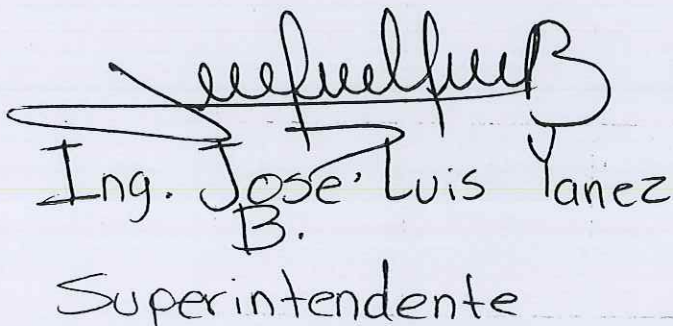 Ing. José Luis Yanez
B.
Superintendente